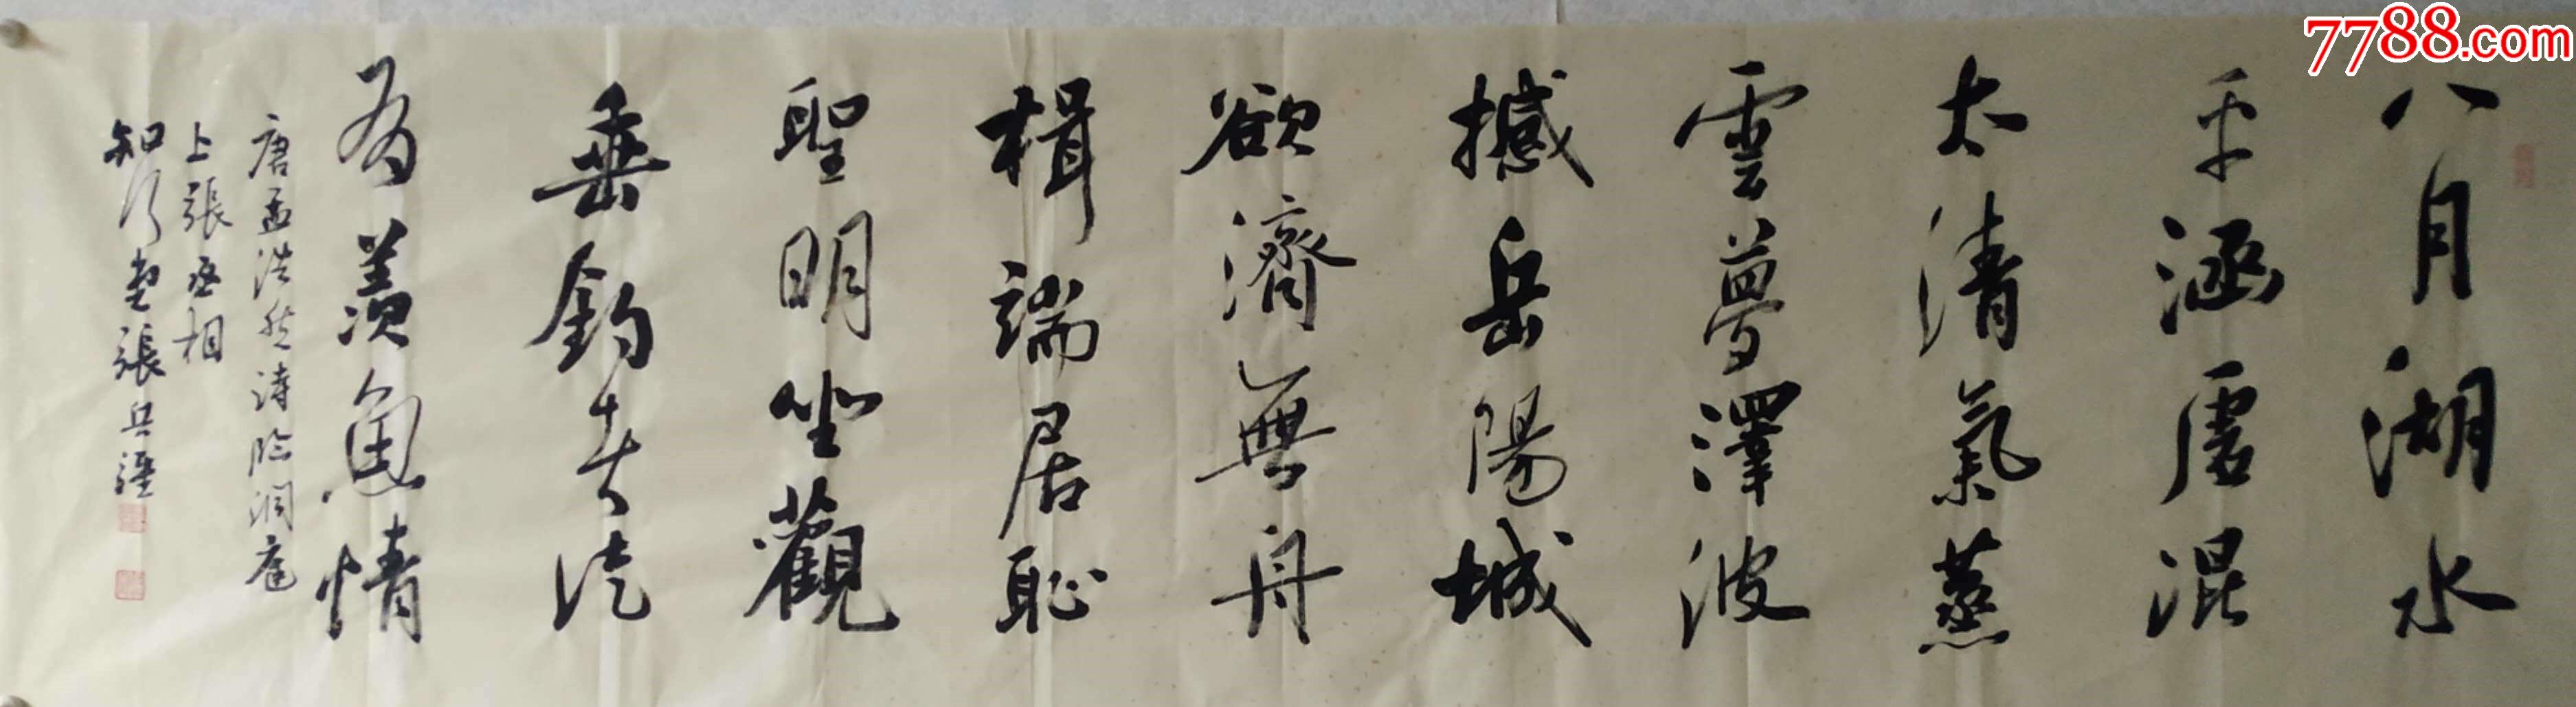 八月湖水
平涵虛混
太清氣蒸
雲夢澤波
撼岳陽城
欲濟無舟
楫端居恥
聖明坐觀
垂釣者徒
有羨魚情
唐孟浩然詩臨洞庭
上張丞相
知行堂張兵
7788.com